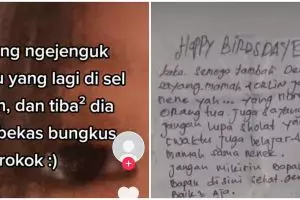 ng ngejenguk
u yang lagi di sel
n, dan tiba² dia
bekas bungkus
rokok :)
HAPPY BIRDSDAYE
kaka semoga tambah De
sayang, mamah
nene yah... yang
orang tua. juga sayang
jangan lupa sholat
waktu juga belajar
mamah sama nenek.
jangan mikirin bapak
bapak disini sehat
baik² Aja.